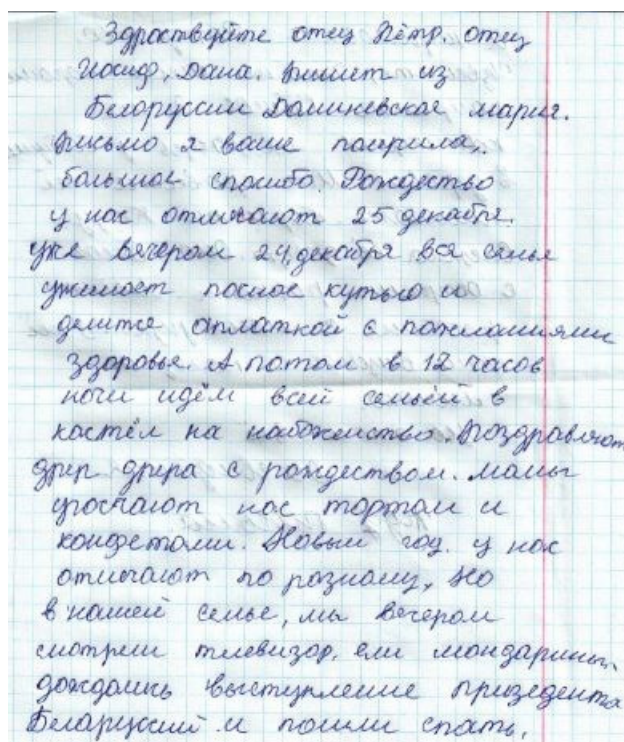 Здраствуйте отец Пётр. отец
Иосиф, Дана. пишет из
Белоруссии Далиневская мария.
письмо я ваше получила,
большое спасибо. Рождество
у нас отмечают 25 декабря.
уже вечером 24 декабря вся семья
ужинает постную кутью и
делится оплаткой с пожеланиями
здоровья. А потом в 12 часов
ночи идём всей семьёй в
костёл на набоженство. Поздравляют
друг друга с рождеством. мамы
угощают нас тортом и
конфетами. Новый год у нас
отмечают по разному, Но
в нашей семье, мы вечером
смотрели телевизор, ели мандарины,
дождались выступление призедента
Беларуссий и пошли спать.